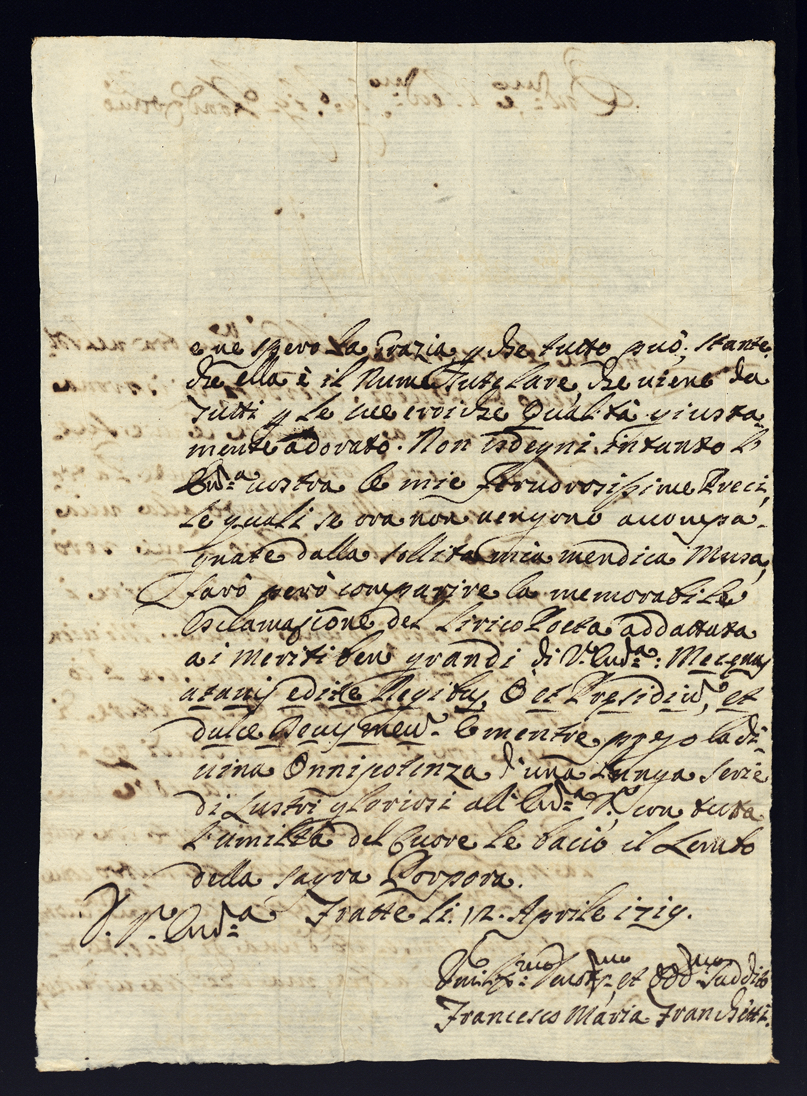 e ne spero la Grazia, che tutto può, stante,
che ella è il Nume Tutelare, che viene da
Tutti le sue eroiche Qualità giusta
mente adorato. Non isdegni intanto l'
Em.a vostra le mie fervorosissime Preci,
le quali se ora non vengono accompa-
gnate dalla sollita mia mendica Musa,
farò però comparire la memorabile
Esclamazione del Lirico Poeta addattata
ai meriti ben grandi di V.a Em.a: Mecenas
atavis edite Regibus, O et Presidiu, et
dulce Decus meu. E mentre prego la di-
uina Onnipotenza d'una Lunga serie
di Lustri gloriosi all'Em.a V.a, con tutta
l'umiltà del Cuore le bacio il Lembo
della sagra Porpora.
D. V. Em.a Fratte li. 12. Aprile 1719.
Umiliss.mo Deuot.mo et Obb.mo Suddito
Francesco Maria Franchetti.